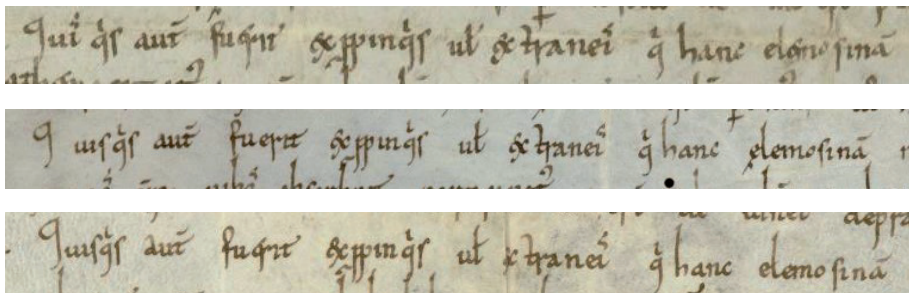 Quiſ q̇s aut̄ fuerit ex ꝓpinq̇s ul̄ extranei q̇ hanc elemosinā
Quisq̇s aut̄ fuerit ex ꝓpinq̇s ul̄ extranei q̇ hanc elemosinā
Quisq̇s aut̄ fuerit ex ꝓpinq̇s ul̄ extranei q̇ hanc elemosinā